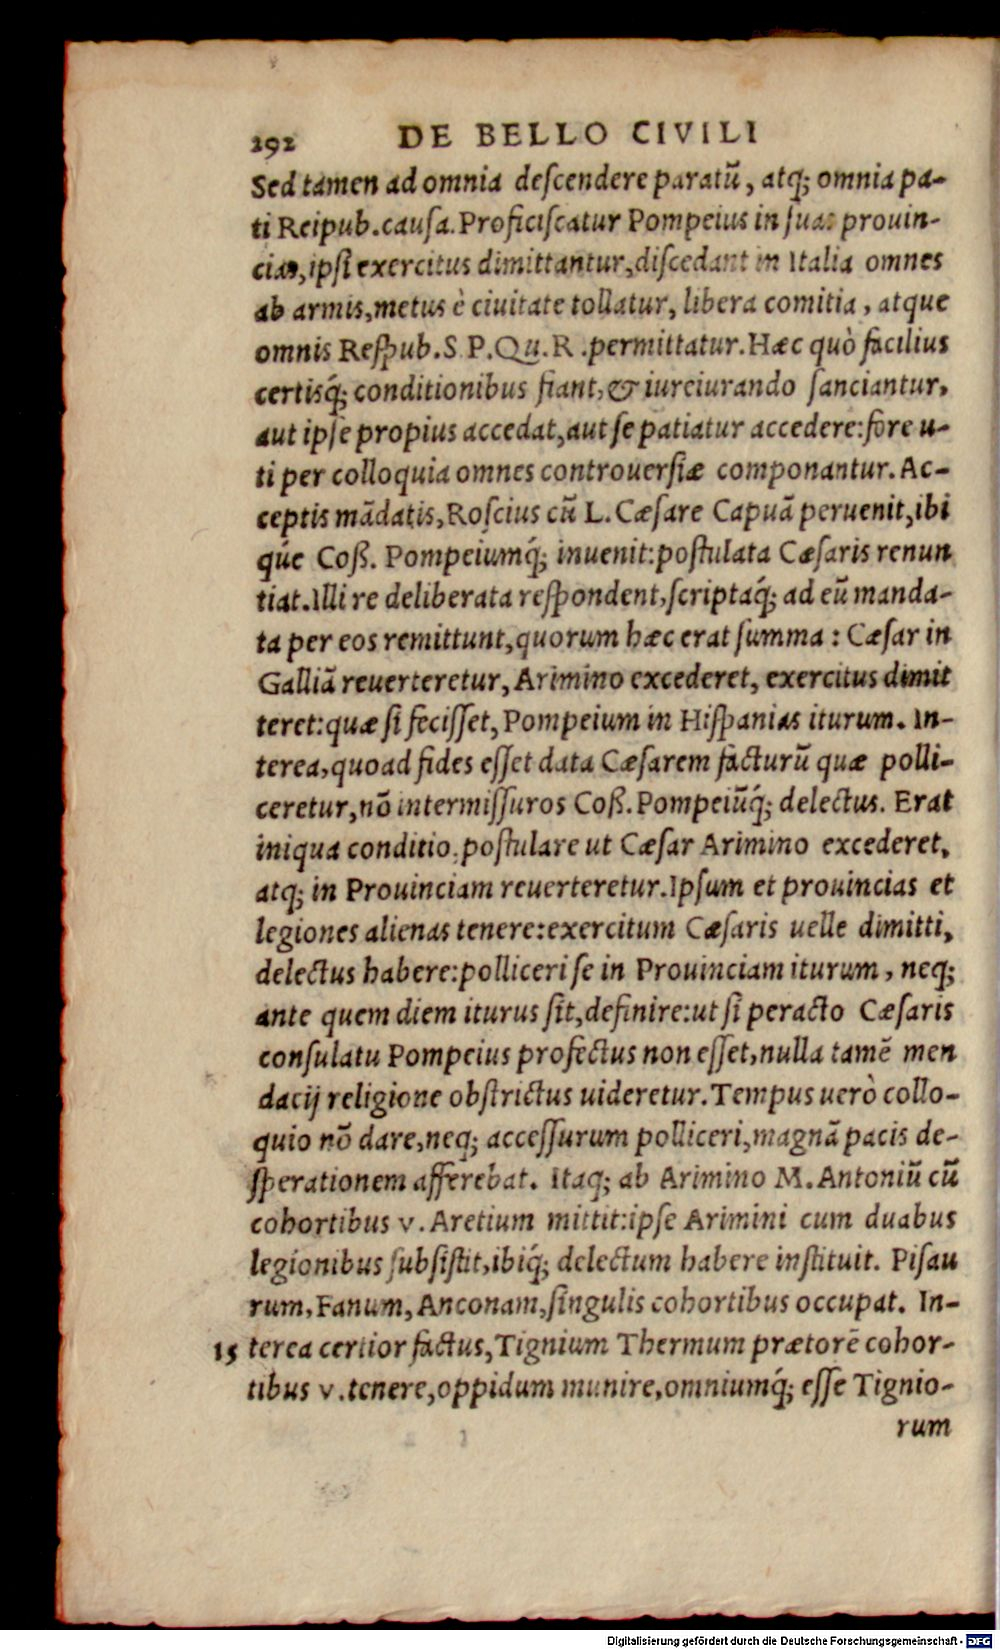 292 DE BELLO CIVILI
Sed tamen ad omnia deſcendere paratũ, atq; omnia pa-
ti Reipub. cauſa. Proficiſcatur Pompeius in ſuas prouin-
cias, ipſi exercitus dimittantur, diſcedant in Italia omnes
ab armis, metus è ciuitate tollatur, libera comitia, atque
omnis Reſpub. S P. Qu. R. permittatur. Hæc quò facilius
certisq́; conditionibus fiant, & iureiurando ſanciantur,
aut ipſe propius accedat, aut ſe patiatur accedere: fore u-
ti per colloquia omnes controuerſiæ componantur. Ac-
ceptis mãdatis, Roſcius cũ L. Cæſare Capuã peruenit, ibi
qúe Coß. Pompeiumq́; inuenit: poſtulata Cæſaris renun
tiat. Illi re deliberata reſpondent, ſcriptaq́; ad eũ manda-
ta per eos remittunt, quorum hæc erat ſumma: Cæſar in
Galliã reuerteretur, Arimino excederet, exercitus dimit
teret: quæ ſi feciſſet, Pompeium in Hiſpanias iturum. In-
terea, quoad fides eſſet data Cæſarem facturũ quæ polli-
ceretur, nõ intermiſſuros Coß. Pompeiũq́; delectus. Erat
iniqua conditio, poſtulare ut Cæſar Arimino excederet,
atq; in Prouinciam reuerteretur. Ipſum et prouincias et
legiones alienas tenere: exercitum Cæſaris uelle dimitti,
delectus habere: polliceri ſe in Prouinciam iturum, neq;
ante quem diem iturus ſit, definire: ut ſi peracto Cæſaris
conſulatu Pompeius profectus non eſſet, nulla tamẽ men
dacij religione obſtrictus uideretur. Tempus uerò collo-
quio nõ dare, neq; acceſſurum polliceri, magnã pacis de-
ſperationem afferebat. Itaq; ab Arimino M. Antoniũ cũ
cohortibus v. Aretium mittit: ipſe Arimini cum duabus
legionibus ſubſiſtit, ibiq́; delectum habere inſtituit. Piſau
rum, Fanum, Anconam, ſingulis cohortibus occupat. In-
15 terea certior factus, Tignium Thermum prætorẽ cohor-
tibus v. tenere, oppidum munire, omniumq́; eſſe Tignio-
rum
Digitalisierung gefördert durch die Deutsche Forschungsgemeinschaft - DFG